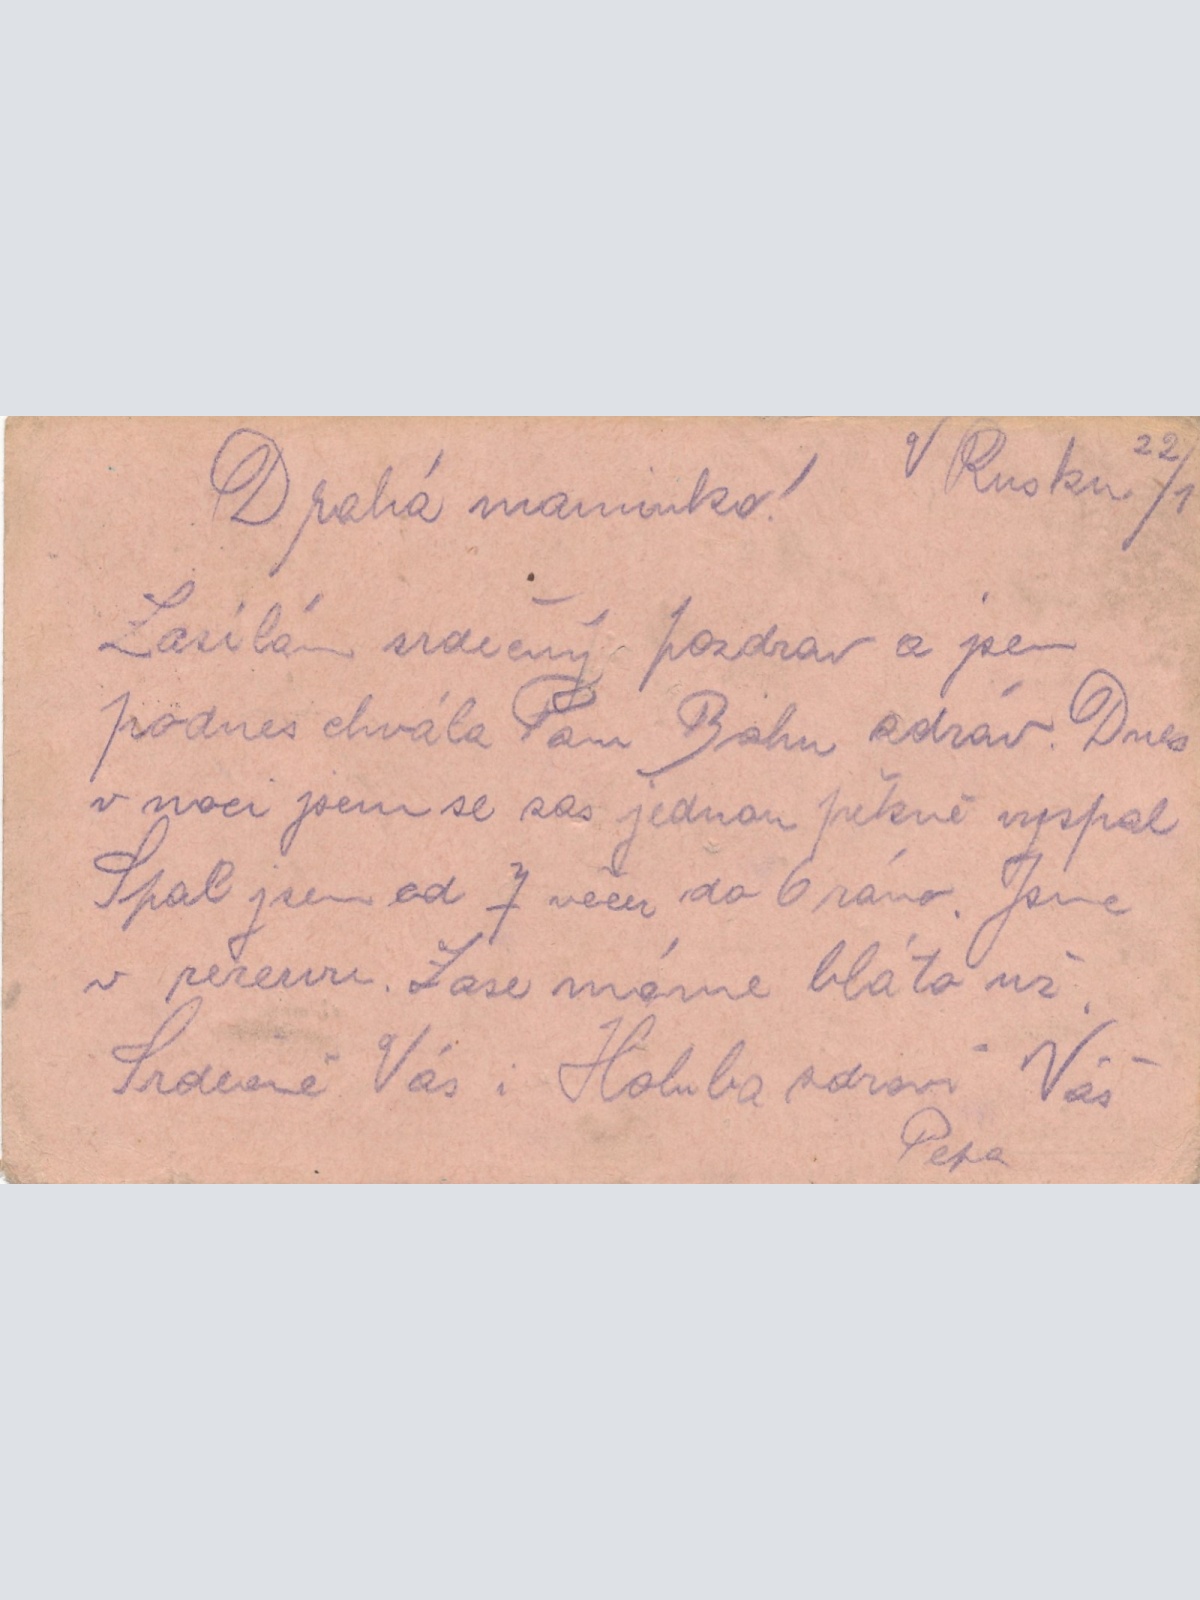 V Rusku 22/1
Drahá maminko!
Zasílám srdečný pozdrav a jsem
podnes chvála Pánu Bohu zdráv. Dnes
v noci jsem se zas jednou pěkně vyspal
Spal jsem od 7 večer do 6 ráno. Jsme
v reservi. Zase máme bláto už.
Srdečně Vás i Holuba zdraví Váš
Pepa